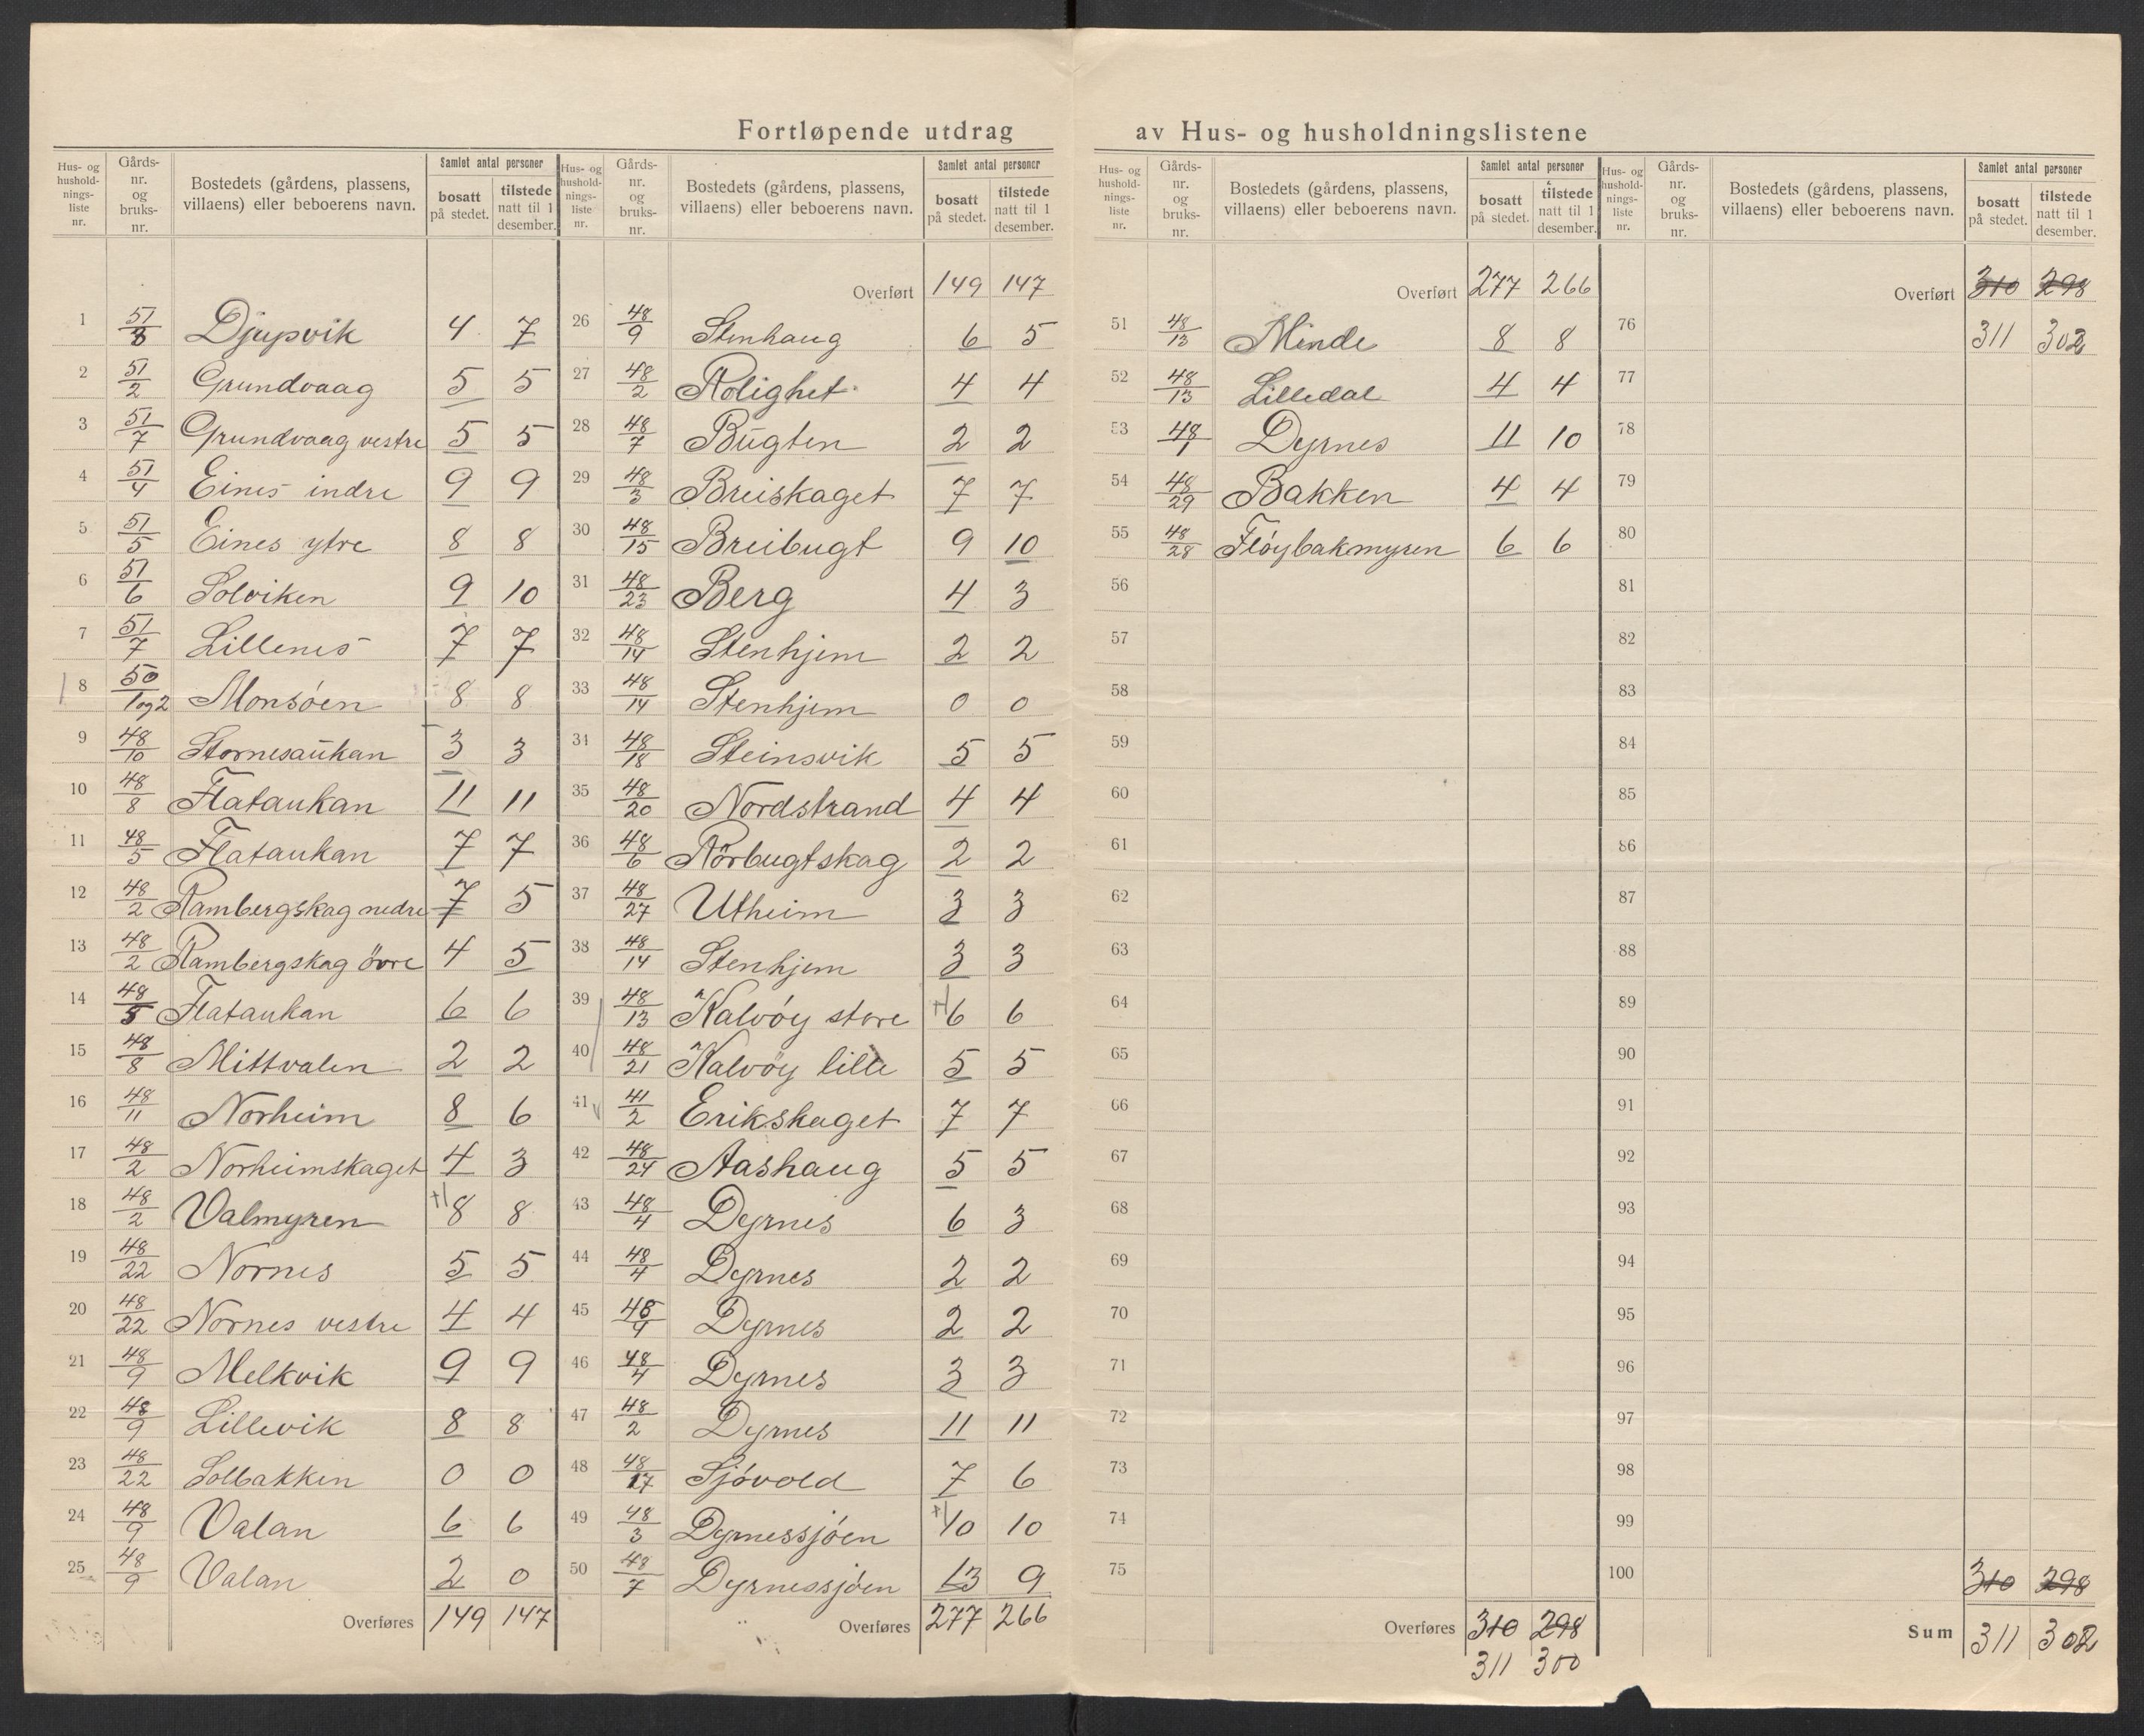 Fortløpende utdrag av Hus- og husholdningslistene
Hus- og hushold-nings-liste nr. Gårds-nr. og bruks-nr. Bostedets (gårdens, plassens, villaens) eller beboerens navn. Samlet antal personer bosatt på stedet. tilstede natt til 1 desember.
1 51/3 Djupvik 4 7
2 51/2 Grundvaag 5 5
3 51/7 Grundvaag vestre 5 5
4 51/4 Eines indre 9 9
5 51/5 Eines ytre 8 8
6 51/6 Solviken 9 10
7 51/7 Lillenes 7 7
8 50/1 og 2 Monsöen 8 8
9 48/10 Stornesaukan 3 3
10 48/8 Flataukan 11 11
11 48/5 Flataukan 7 7
12 48/2 Rambergskag nedre 7 5
13 48/2 Rambergskag övre 4 5
14 48/5 Flataukan 6 6
15 48/8 Mittvalen 2 2
16 48/11 Norheim 8 6
17 48/2 Norheimskaget 4 3
18 48/2 Valmyren +1 8 8
19 48/22 Nornes 5 5
20 48/22 Nornes vestre 4 4
21 48/9 Melkvik 9 9
22 48/9 Lillevik 8 8
23 48/22 Solbakken 0 0
24 48/9 Valan 6 6
25 48/9 Valan 2 0
Overføres 149 147
Hus- og hushold-nings-liste nr. Gårds-nr. og bruks-nr. Bostedets (gårdens, plassens, villaens) eller beboerens navn. Samlet antal personer bosatt på stedet. tilstede natt til 1 desember.
Overført 149 147
26 48/9 Stenhaug 6 5
27 48/2 Rolighet 4 4
28 48/7 Bugten 2 2
29 48/3 Breiskaget 7 7
30 48/15 Breibugt 9 10
31 48/23 Berg 4 3
32 48/14 Stenhjem 2 2
33 48/14 Stenhjem 0 0
34 48/18 Steinsvik 5 5
35 48/20 Nordstrand 4 4
36 48/6 Rörbugtskag 2 2
37 48/27 Utheim 3 3
38 48/14 Stenhjem 3 3
39 48/13 Kalvöy store +1 6 6
40 48/21 Kalvöy lille 5 5
41 41/2 Erikskaget 7 7
42 48/24 Aashaug 5 5
43 48/4 Dyrnes 6 3
44 48/4 Dyrnes 2 2
45 48/4 Dyrnes 2 2
46 48/4 Dyrnes 3 3
47 48/2 Dyrnes 11 11
48 48/17 Sjövold 7 6
49 48/3 Dyrnessjöen +1 10 10
50 48/7 Dyrnessjöen 13 9
Overføres 277 266
Hus- og hushold-nings-liste nr. Gårds-nr. og bruks-nr. Bostedets (gårdens, plassens, villaens) eller beboerens navn. Samlet antal personer bosatt på stedet. tilstede natt til 1 desember.
Overført 277 266
51 48/13 Minde 8 8
52 48/13 Lilledal 4 4
53 48/1 Dyrnes 11 10
54 48/29 Bakken 4 4
55 48/28 Flöybakmyren 6 6
56
57
58
59
60
61
62
63
64
65
66
67
68
69
70
71
72
73
74
75
Overføres 310 298
311 300
Hus- og hushold-nings-liste nr. Gårds-nr. og bruks-nr. Bostedets (gårdens, plassens, villaens) eller beboerens navn. Samlet antal personer bosatt på stedet. tilstede natt til 1 desember.
Overført 310 298
76 311 302
77
78
79
80
81
82
83
84
85
86
87
88
89
90
91
92
93
94
95
96
97
98
99
100 310 298
Sum 311 302